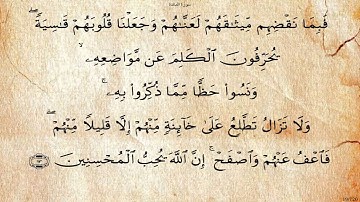 فَبِمَا نَقْضِهِم مِّيثَٰقَهُمْ لَعَنَّٰهُمْ وَجَعَلْنَا قُلُوبَهُمْ قَٰسِيَةً ۖ
يُحَرِّفُونَ ٱلْكَلِمَ عَن مَّوَاضِعِهِۦ ۙ
وَنَسُوا۟ حَظًّا مِّمَّا ذُكِّرُوا۟ بِهِۦ ۚ
وَلَا تَزَالُ تَطَّلِعُ عَلَىٰ خَآئِنَةٍ مِّنْهُمْ إِلَّا قَلِيلًا مِّنْهُمْ ۖ
فَٱعْفُ عَنْهُمْ وَٱصْفَحْ ۚ إِنَّ ٱللَّهَ يُحِبُّ ٱلْمُحْسِنِينَ ١٣